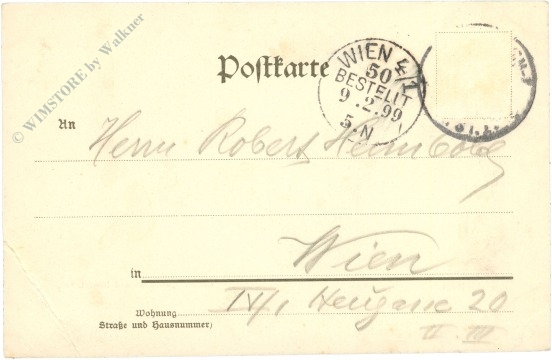 © WIMSTORE by Walkner
Postkarte
WIEN 4/1
50
BESTELLT
9.2.99
5.N
An Herrn Robert
in Wien
Wohnung IV/1 Heugasse 20
(Straße und Hausnummer)
II III